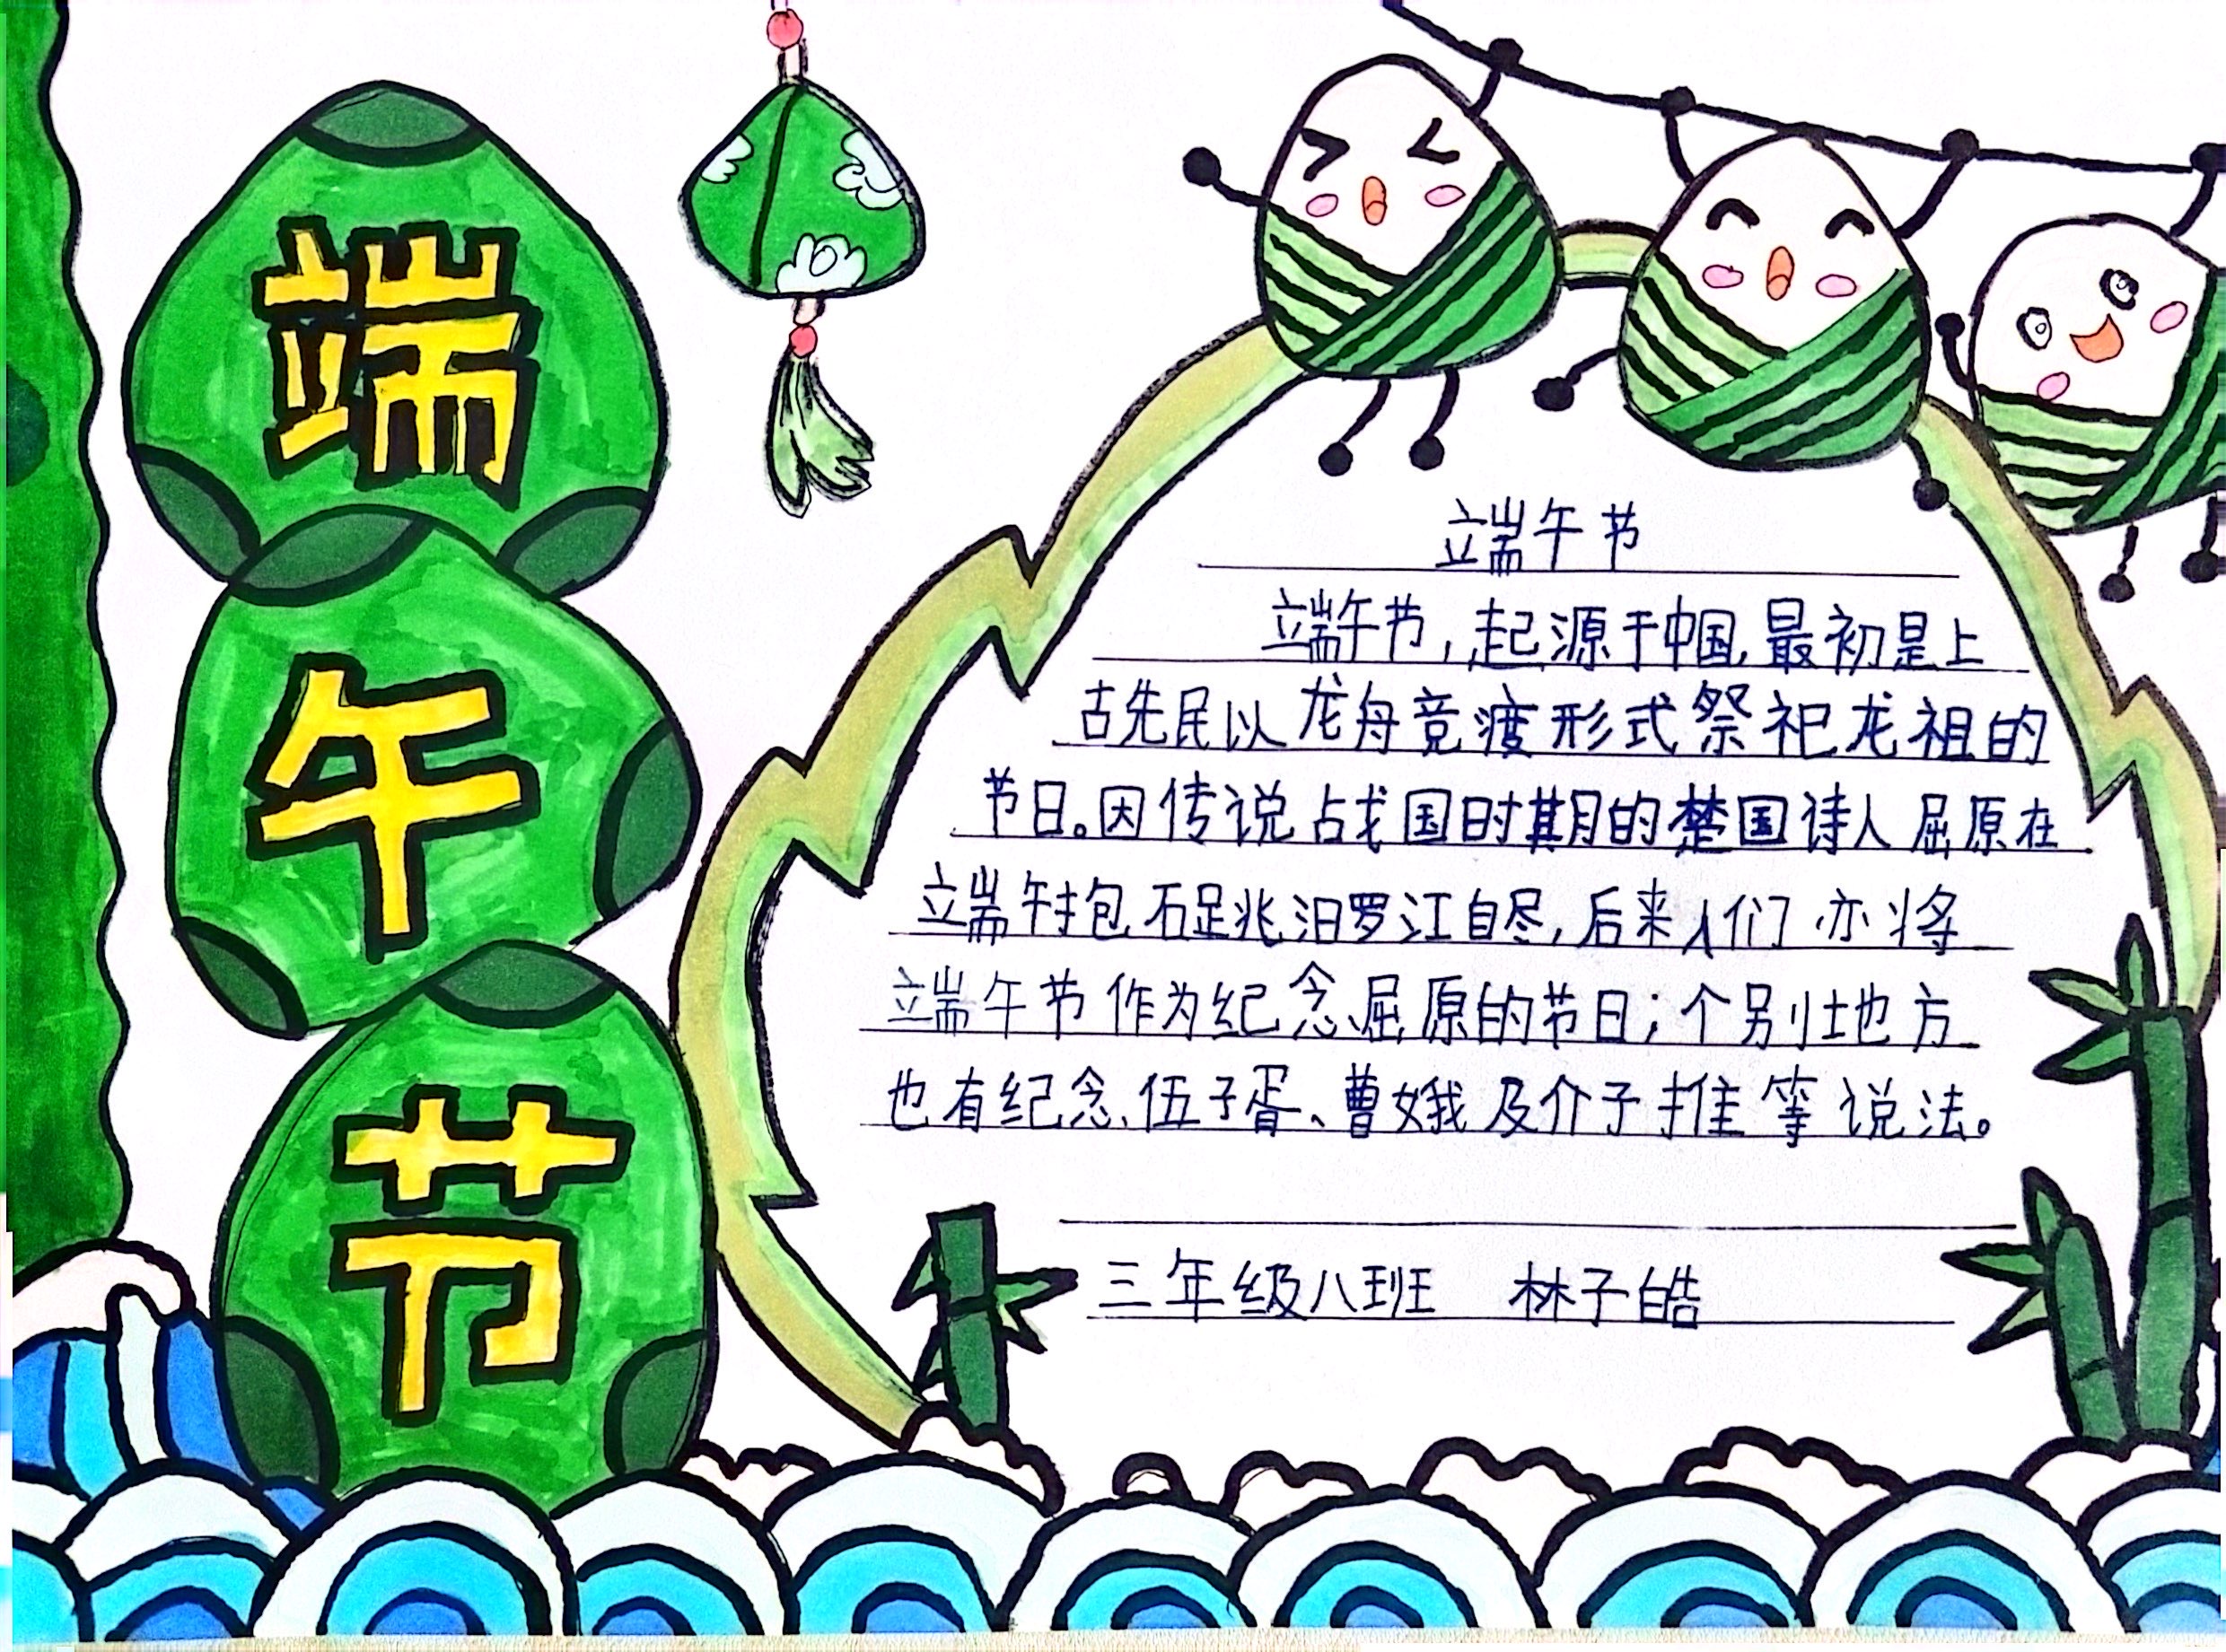 端
午
节
端午节
端午节，起源于中国，最初是上
古先民以龙舟竞渡形式祭祀龙祖的
节日。因传说战国时期的楚国诗人屈原在
端午抱石跳汨罗江自尽，后来人们亦将
端午节作为纪念屈原的节日；个别地方
也有纪念、伍子胥、曹娥及介子推等说法。
三年级八班 林子皓